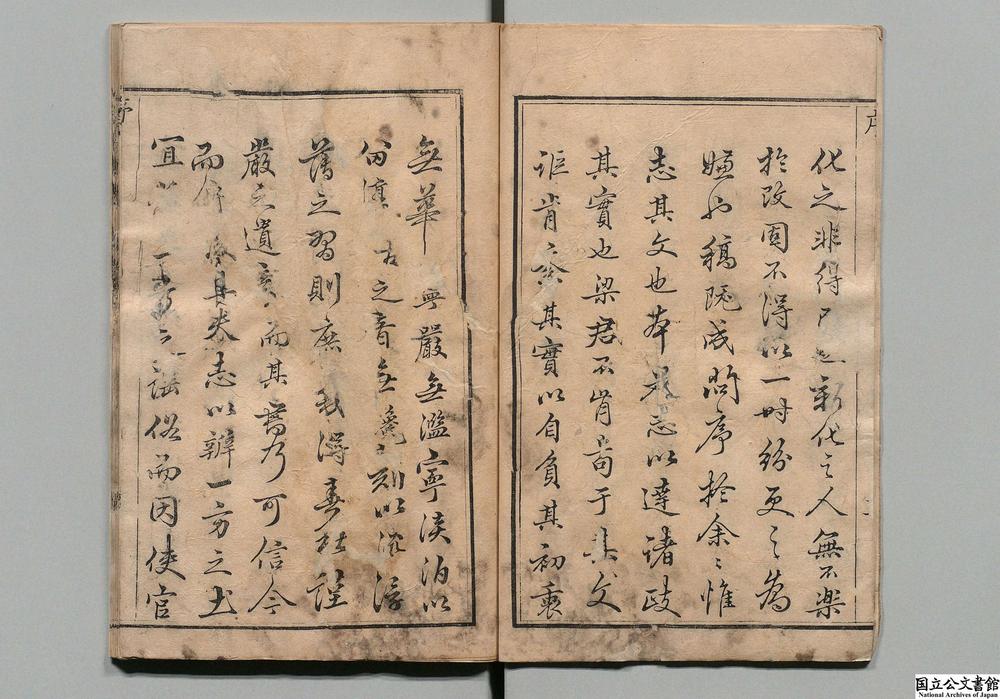 序
化之非得已也新化之人無不樂
於改圖不得以一時紛更之為
嫌也稿既成問序於余〻惟
志其文也本是志以達諸政
其實也梁君不肯苟于其文
詎肯棄其實以自負其初衷
無華 與嚴無濫寧淡泊以
古之音無 刻以滋浮
薄之習則庶幾得春秋謹
嚴之遺意而其書乃可信今
而 志以辨一方之土
宜 之謡俗而因使官
序
国立公文書館
National Archives of Japan